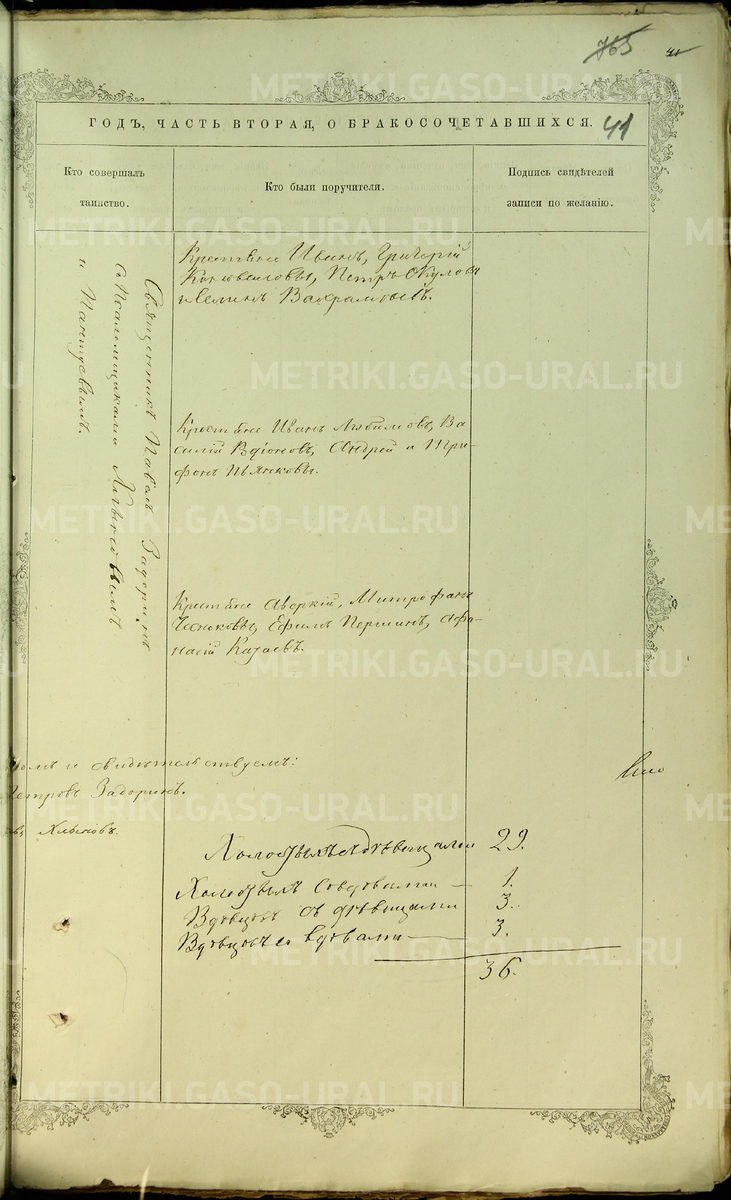 765
41
ГОДЪ, ЧАСТЬ ВТОРАЯ, О БРАКОСОЧЕТАВШИХСЯ.
41
Кто совершалъ
таинство.
Кто были поручители.
Подпись свидѣтелей
записи по желанію.
Священникъ Павелъ Задоринъ
съ Псаломщиками
и
Крестьяне Иванъ, Григорій
Коноваловы, Петръ Окуловъ
и Семенъ
Крестьяне Иванъ Любимовъ, Ва
силій Андрей и Три-
фонъ Пьянковы.
Крестьяне Аверкій, Митрофанъ
Чесноковы, Ефимъ Першинъ, Афа-
насій
и свидѣтельствуемъ:
Петровъ Задоринъ.
Холостыхъ съ дѣвицами 29.
Холостыхъ со вдовами — 1.
Вдовцовъ съ дѣвицами 3.
Вдовцовъ со вдовами — 3.
36.
METRIKI.GASO-URAL.RU